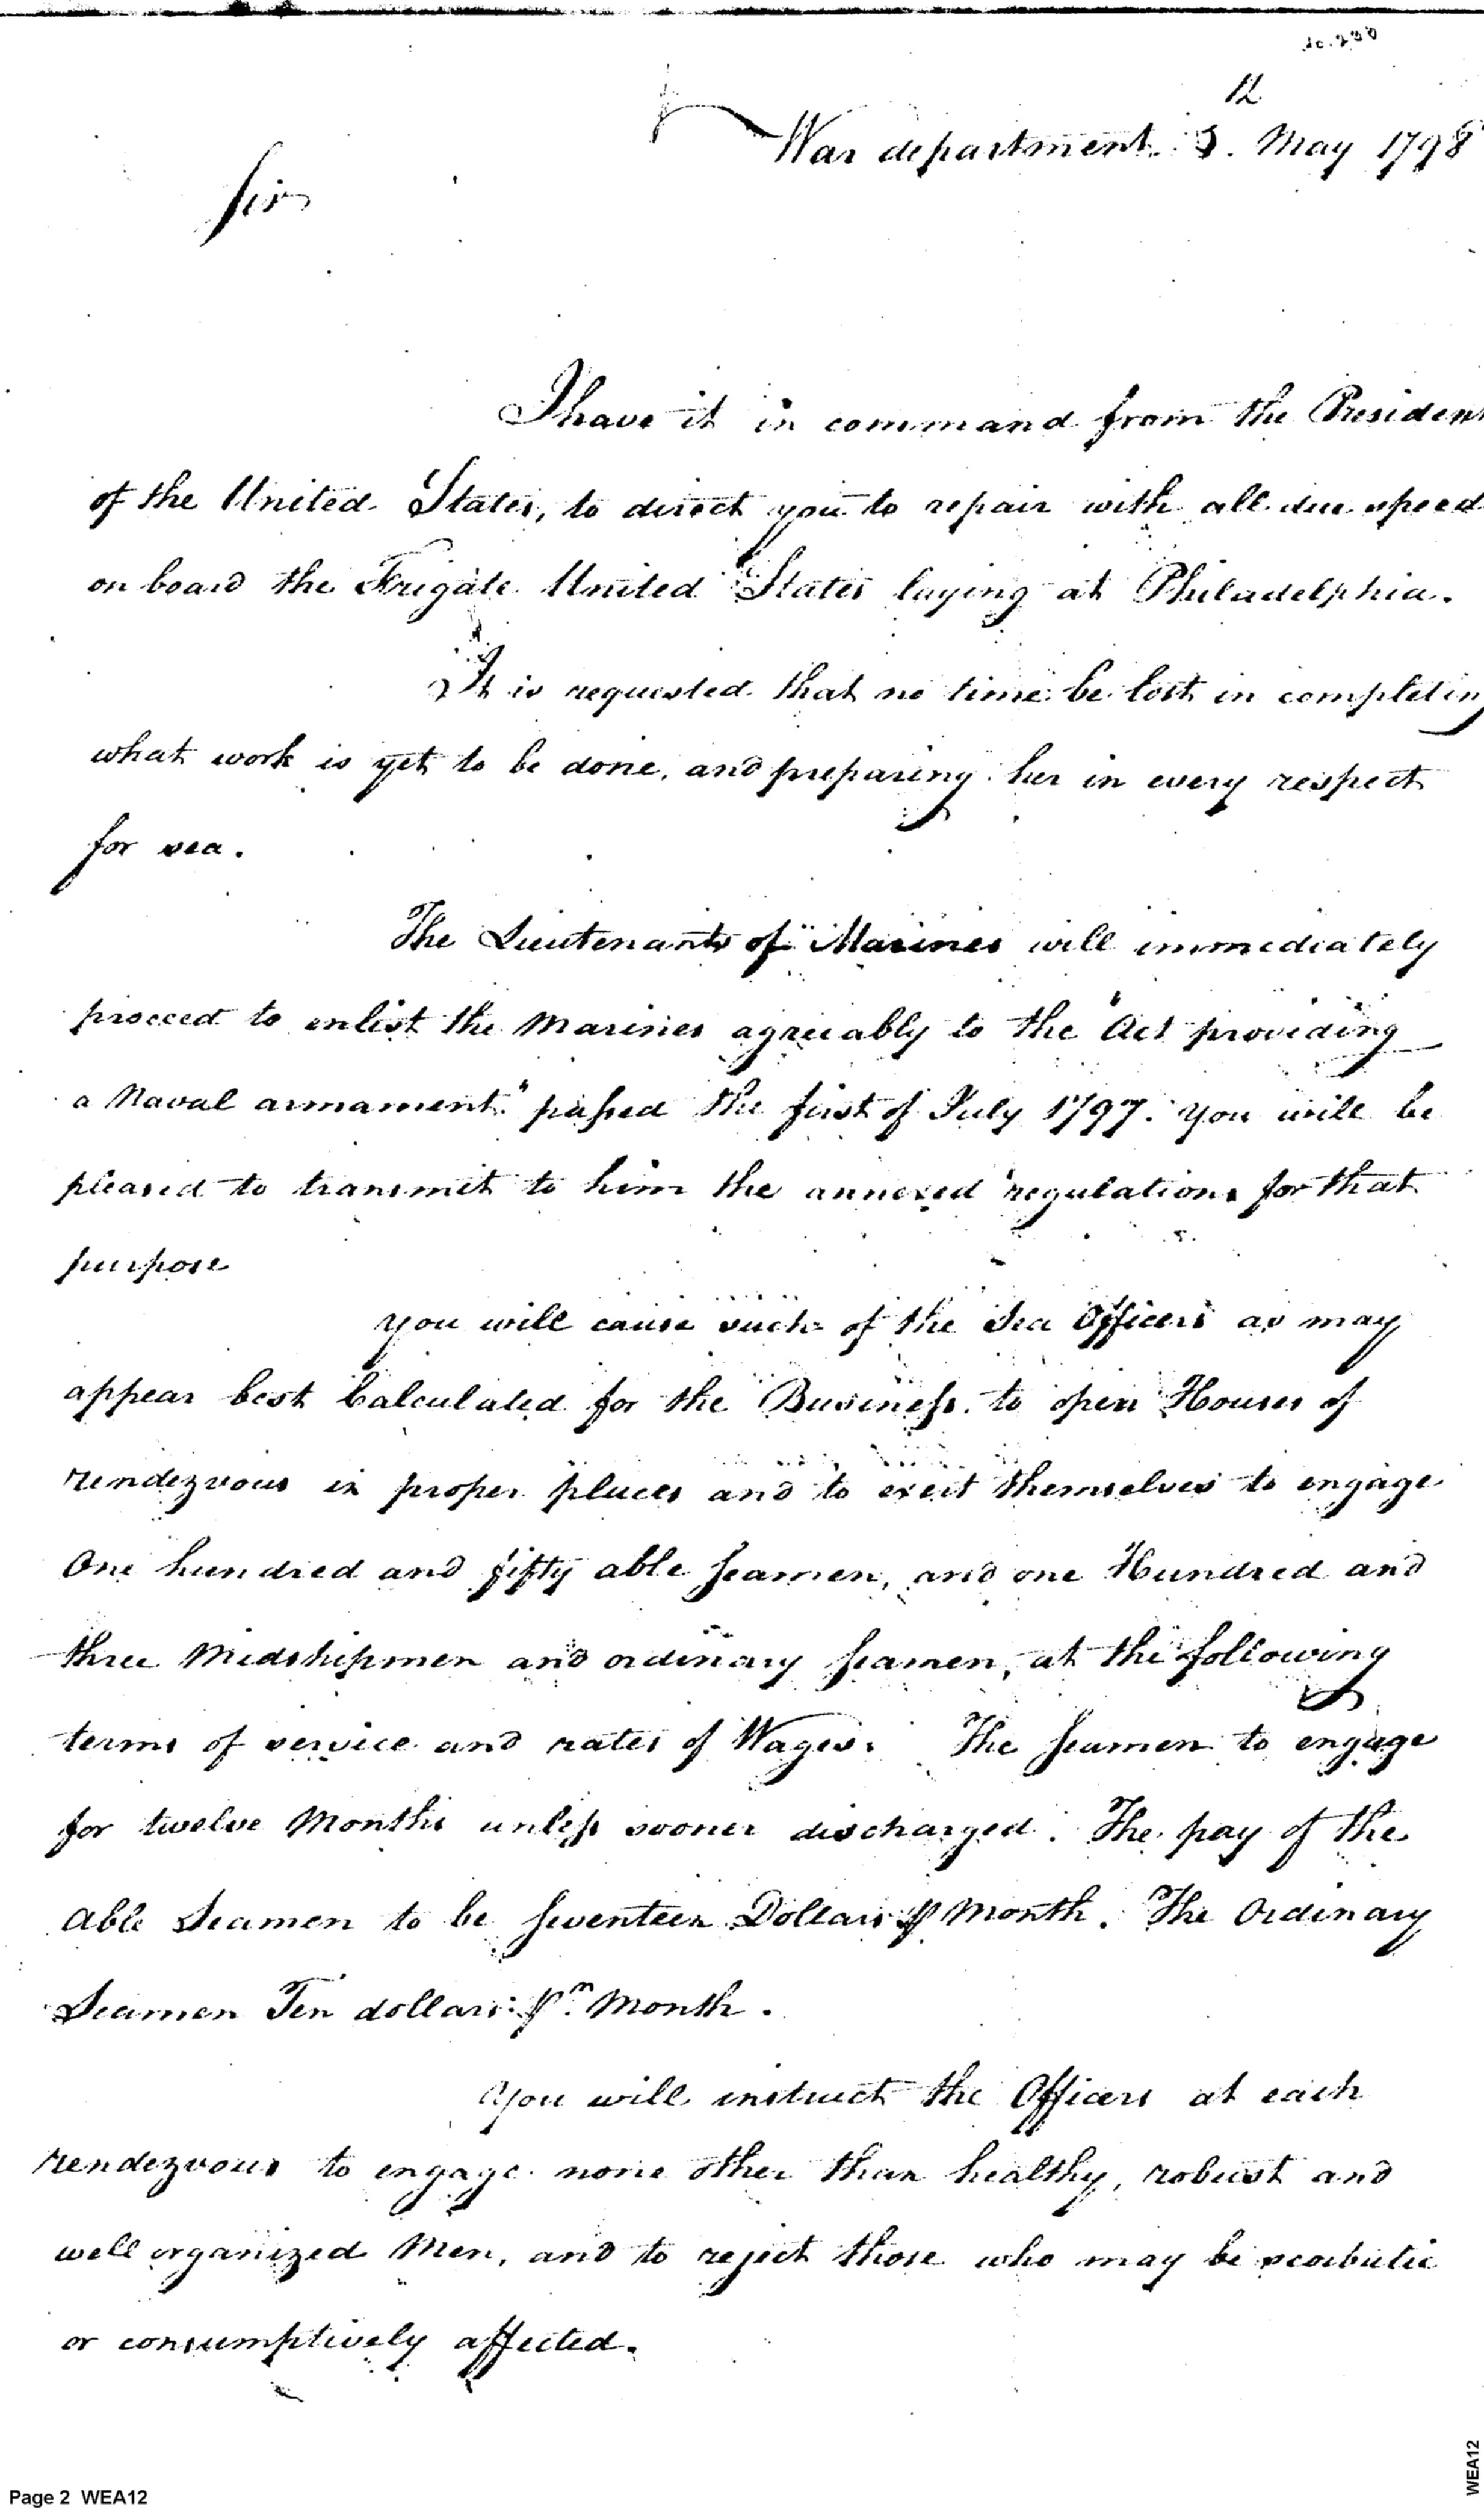 12
War department. 3. May 1798
Sir
I have it in command from the President
of the United States, to direct you to repair with all due speed
on board the Frigate United States laying at Philadelphia.
It is requested that no time be lost in completing
what work is yet to be done, and preparing her in every respect
for sea.
The Lieutenants of Marines will immediately
proceed to enlist the Marines agreeably to the "Act providing
a Naval armament." passed the first of July 1797. You will be
pleased to transmit to him the annexed regulations for that
purpose
you will cause such of the Sea Officers as may
appear best Calculated for the Business. to open Houses of
rendezvous in proper places and to exert themselves to engage
One hundred and fifty able Seamen, and one Hundred and
three Midshipmen and ordinary Seamen, at the following
terms of service and rates of Wages. The Seamen to engage
for twelve Months unless sooner discharged. The pay of the
Able Seamen to be Seventeen Dollars ⅌ Month. The Ordinary
Seamen Ten dollars ⅌ Month.
You will instruct the Officers at each
rendezvous to engage none other than healthy, robust and
well organized Men, and to reject those who may be scorbutic
or consumptively affected.
Page 2 WEA12
WEA12